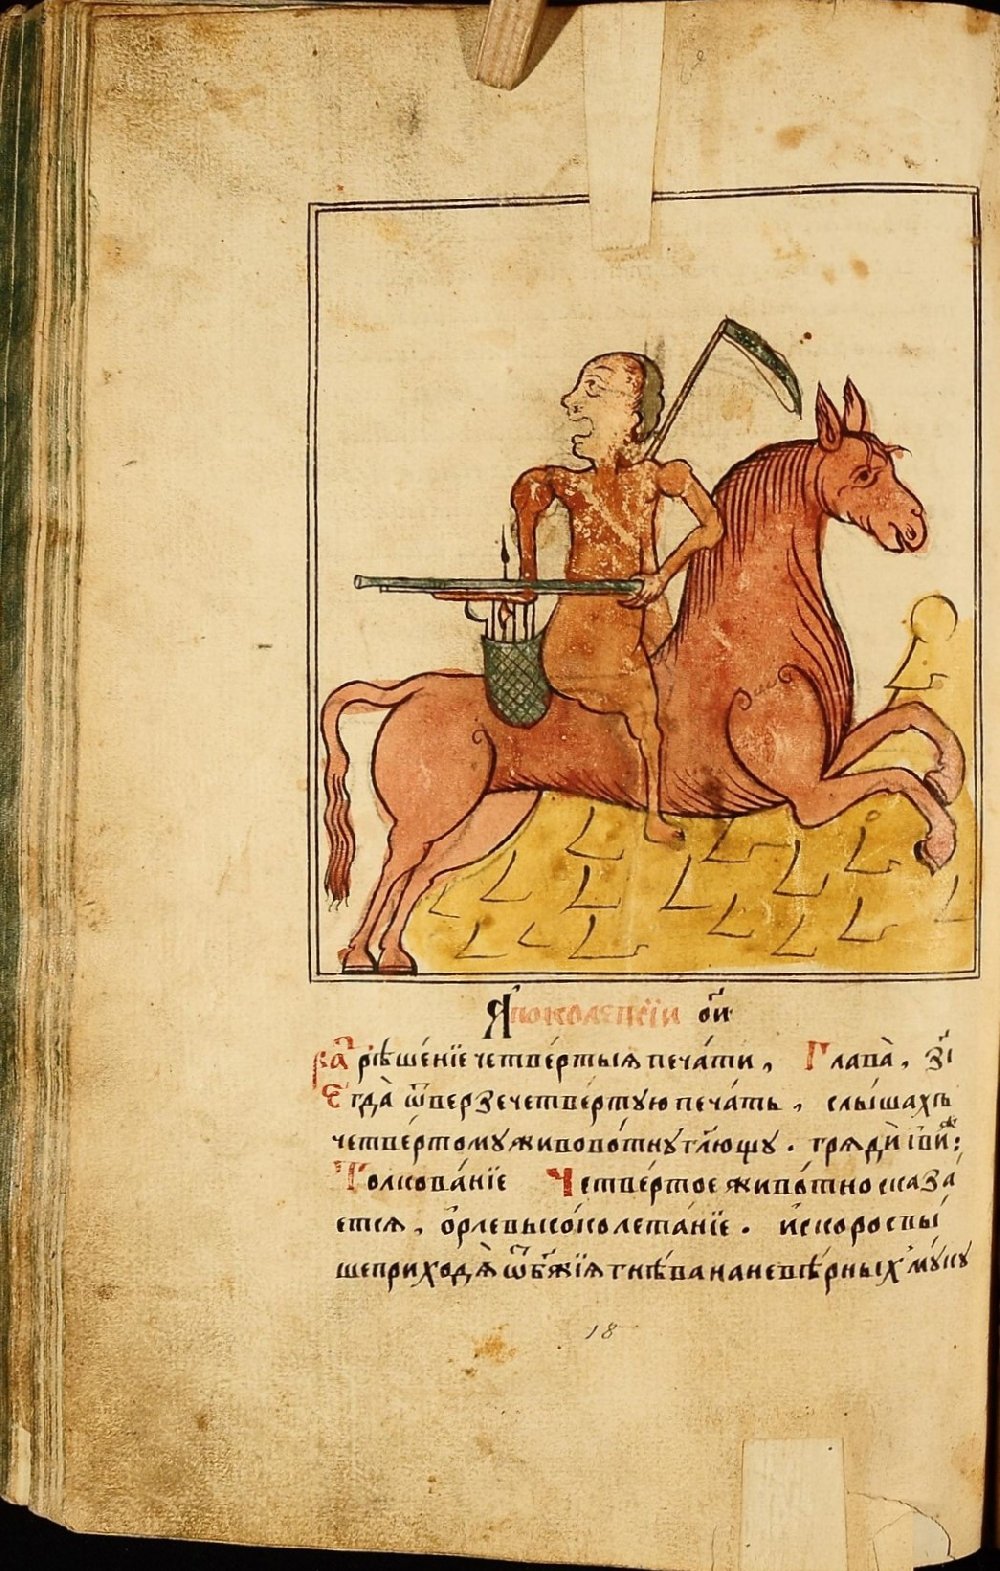 Я҆покалепсїи ѻ҆́и
раꙁрѣше́нїе четве́ртыѧ печа́ти, Глава̀, з҃і
Є҆гда̀ ѿверзе четве́ртую печа́ть, слы́шахъ
четве́ртому живо́тну гл҃ющу. грѧдѝ и҆ ви́ждь:
Толкова́нїе Четве́ртое живо́тно сказа́
етсѧ, ѻ҆́рле высо́ко лета́нїе. и҆ скоро свы́
ше приходѧ̀ ѿ бж҃їѧ гнѣ́ва на невѣ́рныхъ му́ку
18